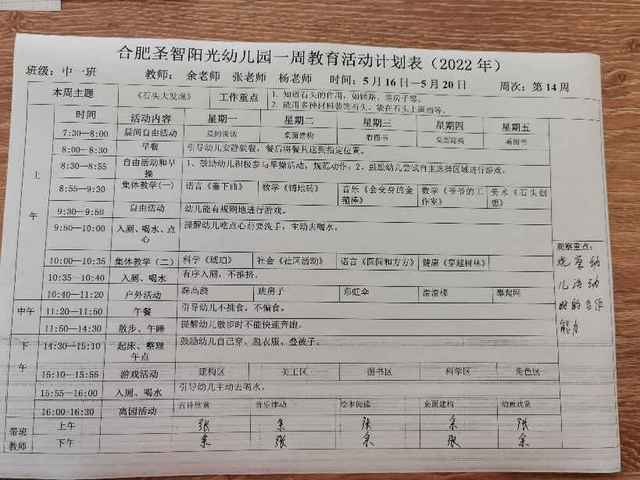 合肥圣智阳光幼儿园一周教育活动计划表（2022 年）
班级：中一班 教师： 余老师 张老师 杨老师 时间：5 月 16 日—5 月 20 日 周次：第 14 周
本周主题 《石头大发现》 工作重点 1、知道石头的作用，如铺路、造房子等。
2、能用多种材料装饰石头，敢在石头上画画等。
时间 活动内容 星期一 星期二 星期三 星期四 星期五
上午
7:30—8:00 晨间自由活动 桌面建构 看图书 桌面建构 看图书
8:00—8:30 早餐 引导幼儿安静就餐，餐后将餐具送到指定位置。
8:30—8:55 自由活动和早操 1、鼓励幼儿积极参与早操活动，规范动作；2、鼓励幼儿尝试自主选择区域进行游戏。
8:55—9:30 集体教学（一） 数学《铺地砖》 音乐《会变身的金箍棒》 数学《爷爷的工作室》 美术《石头创想》
9:30—9:50 自由活动 幼儿能有规则地进行游戏。
9:50—10:00 入厕、喝水、点心 提醒幼儿吃点心前要洗手，主动去喝水。
10:00—10:35 集体教学（二） 科学《琥珀》 社会《社区活动》 语言《圆圆和方方》 健康《穿越树林》
10:35—10:40 入厕、喝水 有序入厕，不推挤。
10:40—11:20 户外活动 玩房子 彩虹伞
中午
11:20—11:50 午餐 引导幼儿不挑食，不偏食。
11:50—14:30 散步、午睡 提醒幼儿散步时不能快速奔跑。
下午
14:30—15:10 起床、整理 午点 鼓励幼儿自己穿、脱衣服、叠被子。
15:10—15:55 游戏活动 建构区 美工区 图书区 科学区 角色区
15:55—16:00 入厕、喝水 引导幼儿主动去喝水。
16:00-16:30 离园活动 音乐律动 绘本阅读 桌面建构
带班教师 上午 张 余 张 余 张
下午 余 张 余 张 余
观察重点：
观察幼
儿活动
时的合作
能力